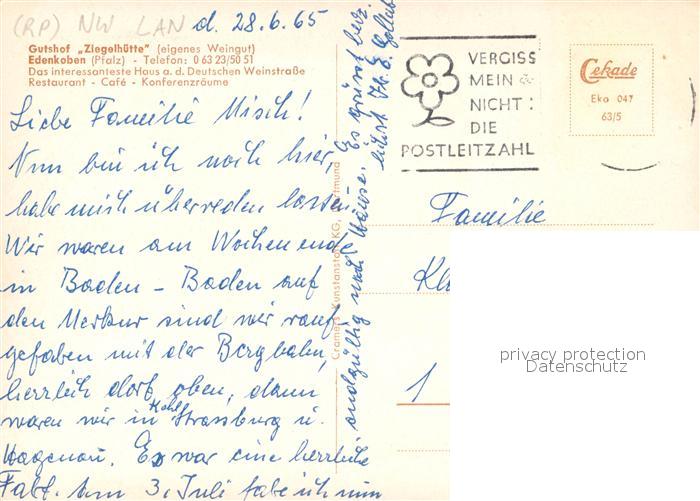 (RP) NW LAN
d. 28.6.65
Gutshof „Ziegelhütte" (eigenes Weingut)
Edenkoben (Pfalz) - Telefon: 0 63 23/50 51
Das interessanteste Haus a. d. Deutschen Weinstraße
Restaurant - Café - Konferenzräume
Liebe Familie Misch!
Nun bin ich noch hier,
habe mich überreden lassen.
Wir waren am Wochenende
in Baden - Baden auf
den Merkur sind wir rauf
gefahren mit der Bergbahn,
herrlich dort oben, dann
waren wir in Kehl Strassburg u.
Hagenau. Es war eine herrliche
Fahrt. Am 3. Juli fahre ich nun
endgültig nach Hause. Es grüsst herz
lichst Ihr E.
Cramers Kunstanstalt KG, Dortmund
VERGISS
MEIN
NICHT:
DIE
POSTLEITZAHL
Cekade
Eka 047
63/5
Familie
Kl
1
privacy protection
Datenschutz